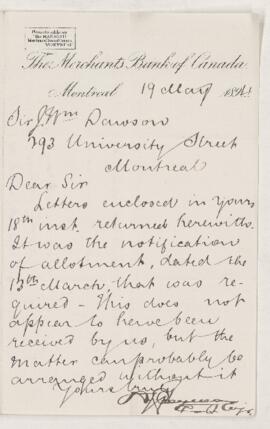 The Merchants Bank of Canada
Montreal 19 May
Sir J Wm Dawson
293 University Street
Montreal
Dear Sir
Letters enclosed in yours
18th inst. returned herewith.
It was the notification
of allotment, dated the
13th March, that was re-
quired - This does not
appear to have been
received by us, but the
matter can probably be
arranged without it
Yours truly